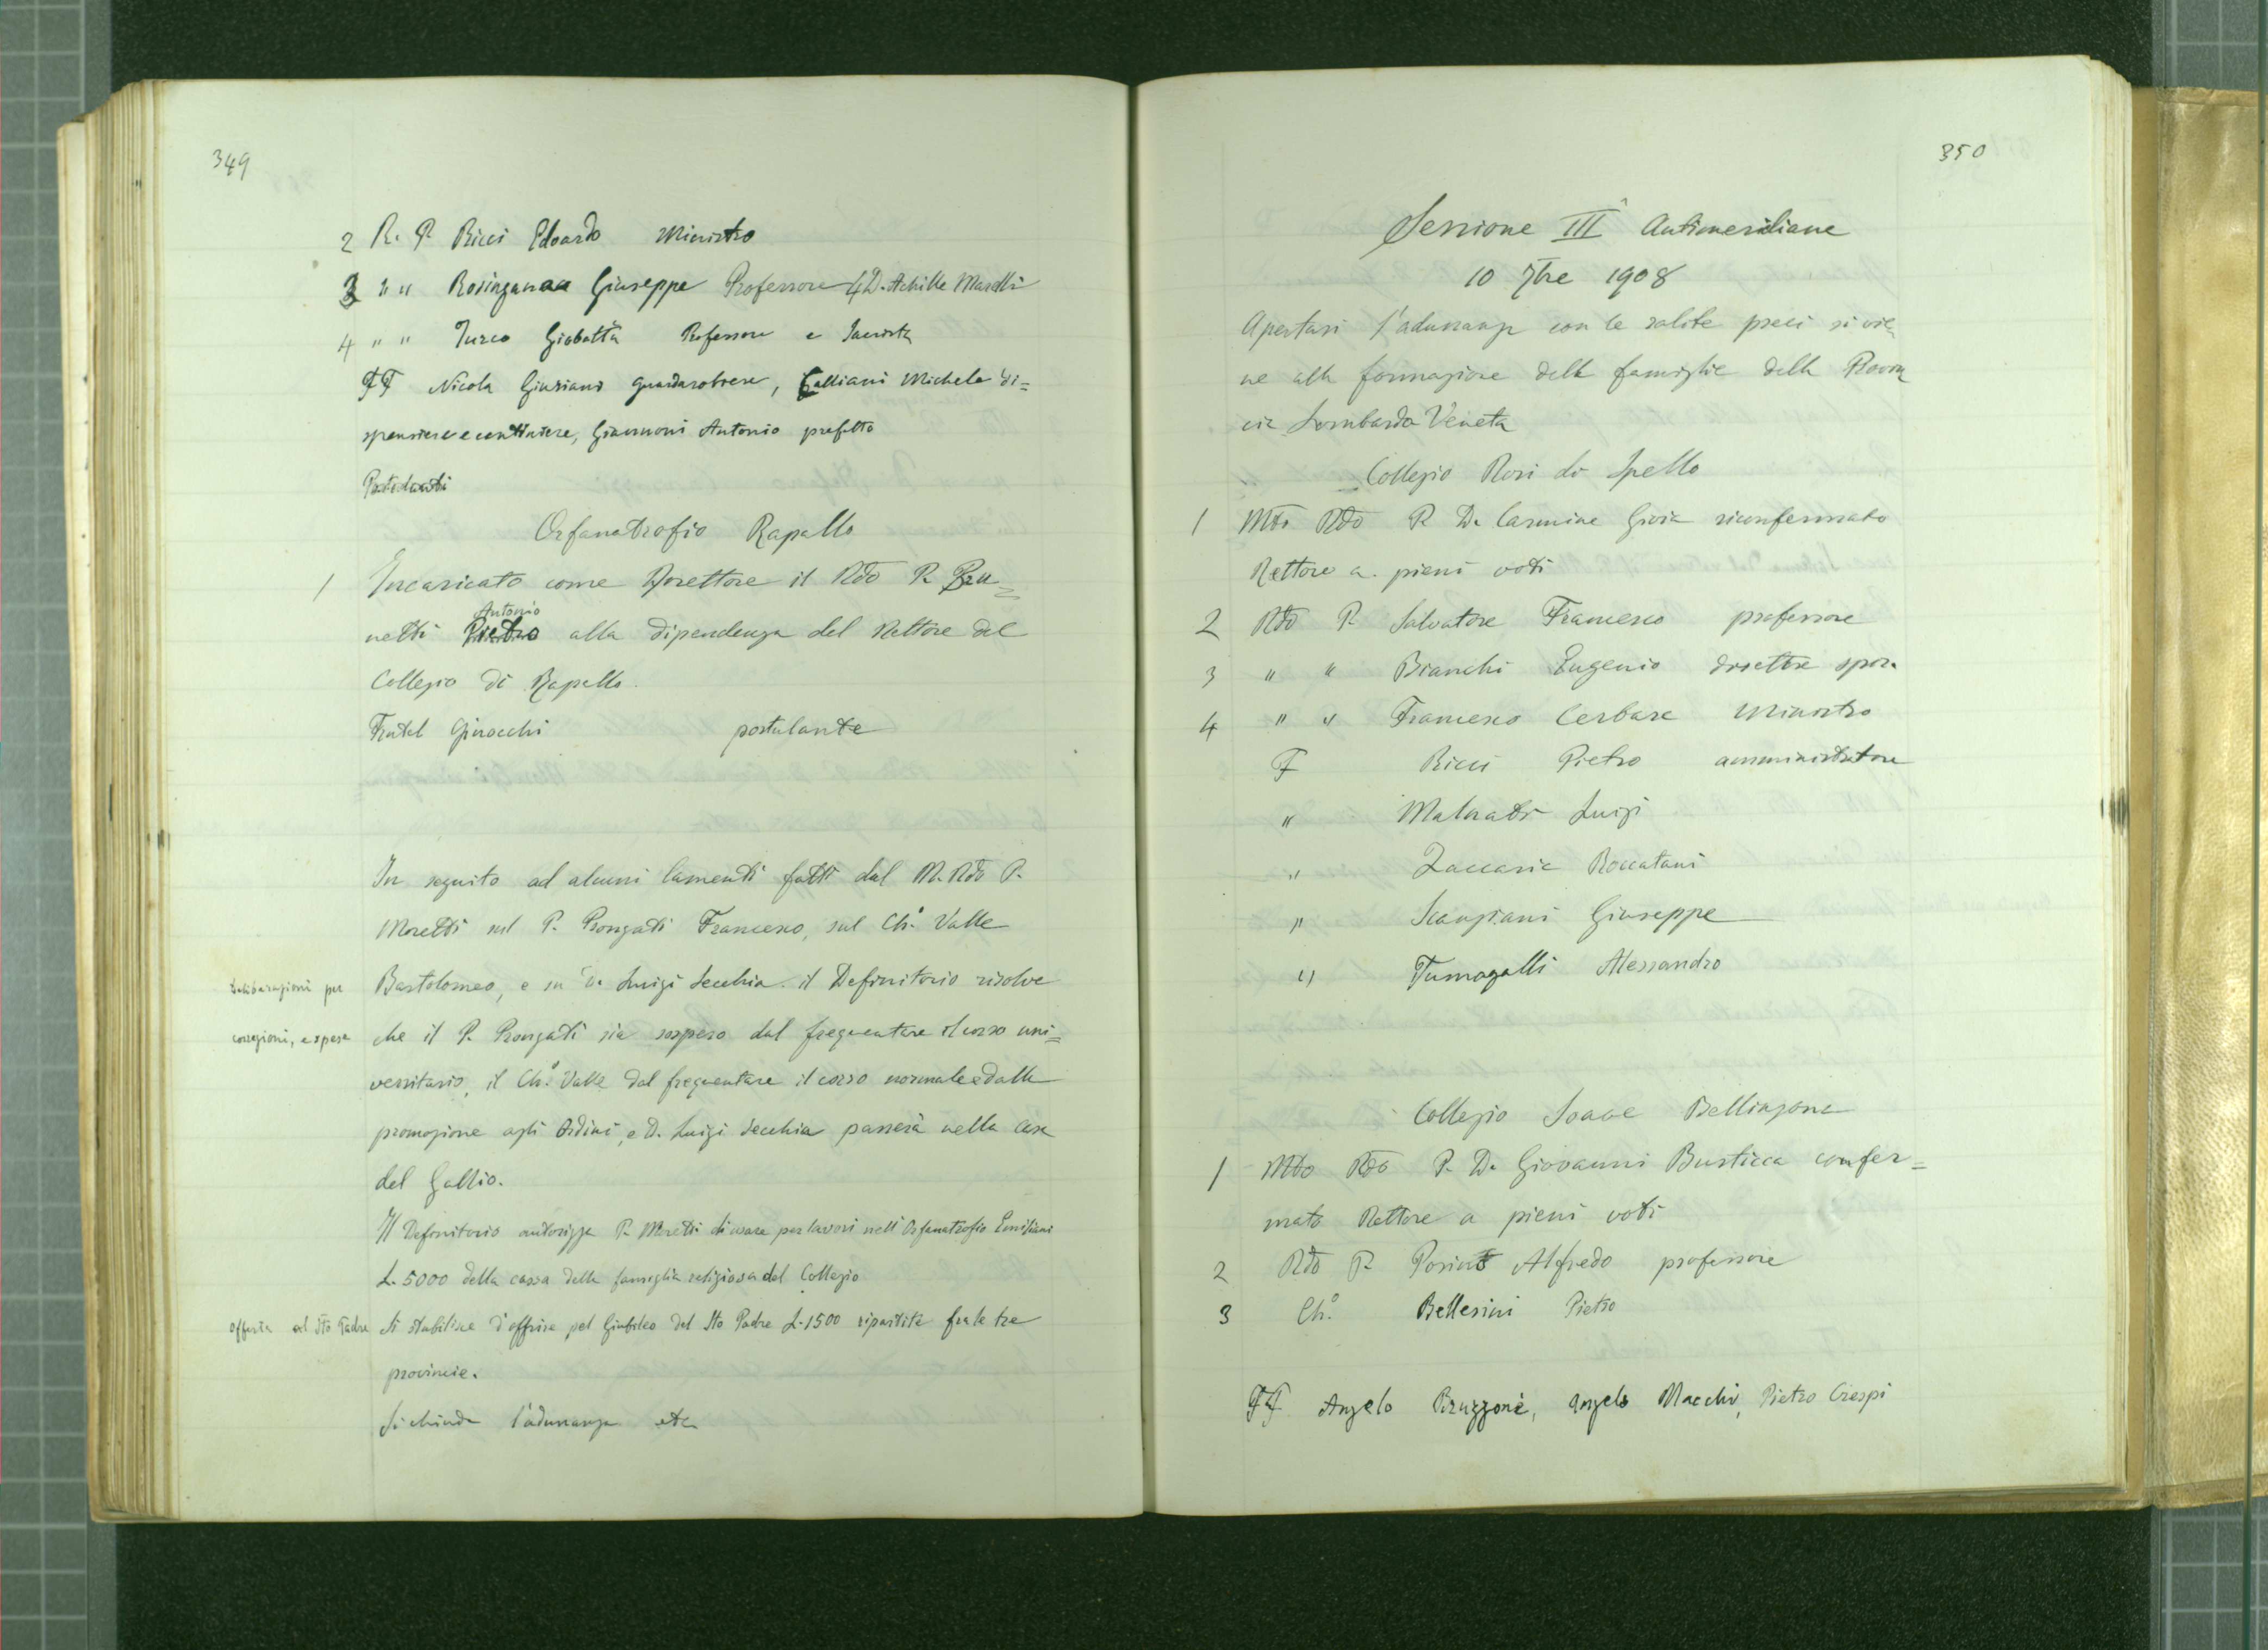 349
2 R. P. Ricci Edoardo Ministro
3 " " Rosinganaa Giuseppe Professore 4 D. Achille Marelli
4 " " Turco Giobatta Professore e Sacrista
FF Nicola Giuriani guardarobiere, Galliani Michele di=
spensiere e cantiniere, Giannoni Antonio prefetto
Postulanti
Orfanotrofio Rapallo
1 Incaricato come Direttore il Rdo P. Bru=
Antonio
netti Pietro alla dipendenza del Rettore del
Collegio di Rapallo.
Fratel Ginocchi postulante
In seguito ad alcuni lamenti fatti dal M. Rdo P.
Moretti sul P. Prongati Francesco, sul Ch.º Valle
Bartolomeo, e su D. Luigi Secchia. il Definitorio risolve
Deliberazioni per
correzioni, e spese
che il P. Prongati sia sospeso dal frequentare il corso uni=
versitario, il Ch.º Valle dal frequentare il corso normale e dalla
promozione agli Ordini, e D. Luigi Secchia passerà nella Casa
del Gallio.
Il Definitorio autorizza P. Moretti di usare per lavori nell'Orfanotrofio Emiliani
L. 5000 della cassa della famiglia religiosa del Collegio
offerta al Sto Padre
Si stabilisce d'offrire pel Giubileo del Sto Padre L. 1500 ripartite fra le tre
provincie.
Si chiude l'adunanza etc
350
Sessione IIIª Antimeridiana
10 7bre 1908
Apertasi l'adunanza con le solite preci si vie
ne alla formazione delle famiglie della Provin
cia Lombardo Veneta
Collegio Rosi di Spello
1 Mto Rdo P. D. Carmine Gioia riconfermato
Rettore a pieni voti
2 Rdo P. Salvatore Francesco professore
3 " " Bianchi Eugenio direttore spir.
4 " " Francesco Cerbara Ministro
F Ricci Pietro amministratore
" Malnati Luigi
" Zaccaria Roccatani
" Scanziani Giuseppe
" Fumagalli Alessandro
Collegio Soave Bellinzona
1 Mto Rdo P. D. Giovanni Busticca confer=
mato Rettore a pieni voti
2 Rdo P. Alfredo professore
3 Ch.º Bellesini Pietro
FF Angelo Bruzzone, Angelo Macchi, Pietro Crespi